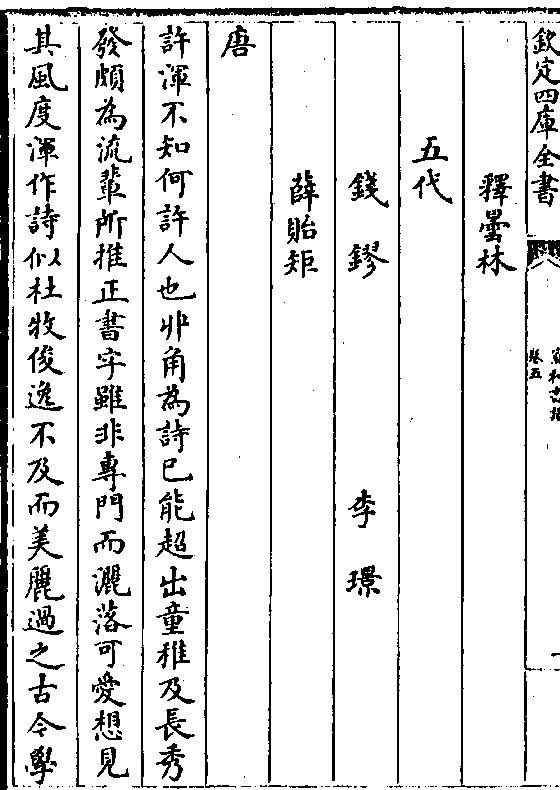 欽定四庫全書
宣和書譜
卷五
釋曇林
五代
錢鏐 李璟
薛貽矩
唐
許渾不知何許人也丱角為詩已能超出童稚及長秀
發頗為流輩所推正書字雖非專門而灑落可愛想見
其風度渾作詩似杜牧俊逸不及而美麗過之古今學